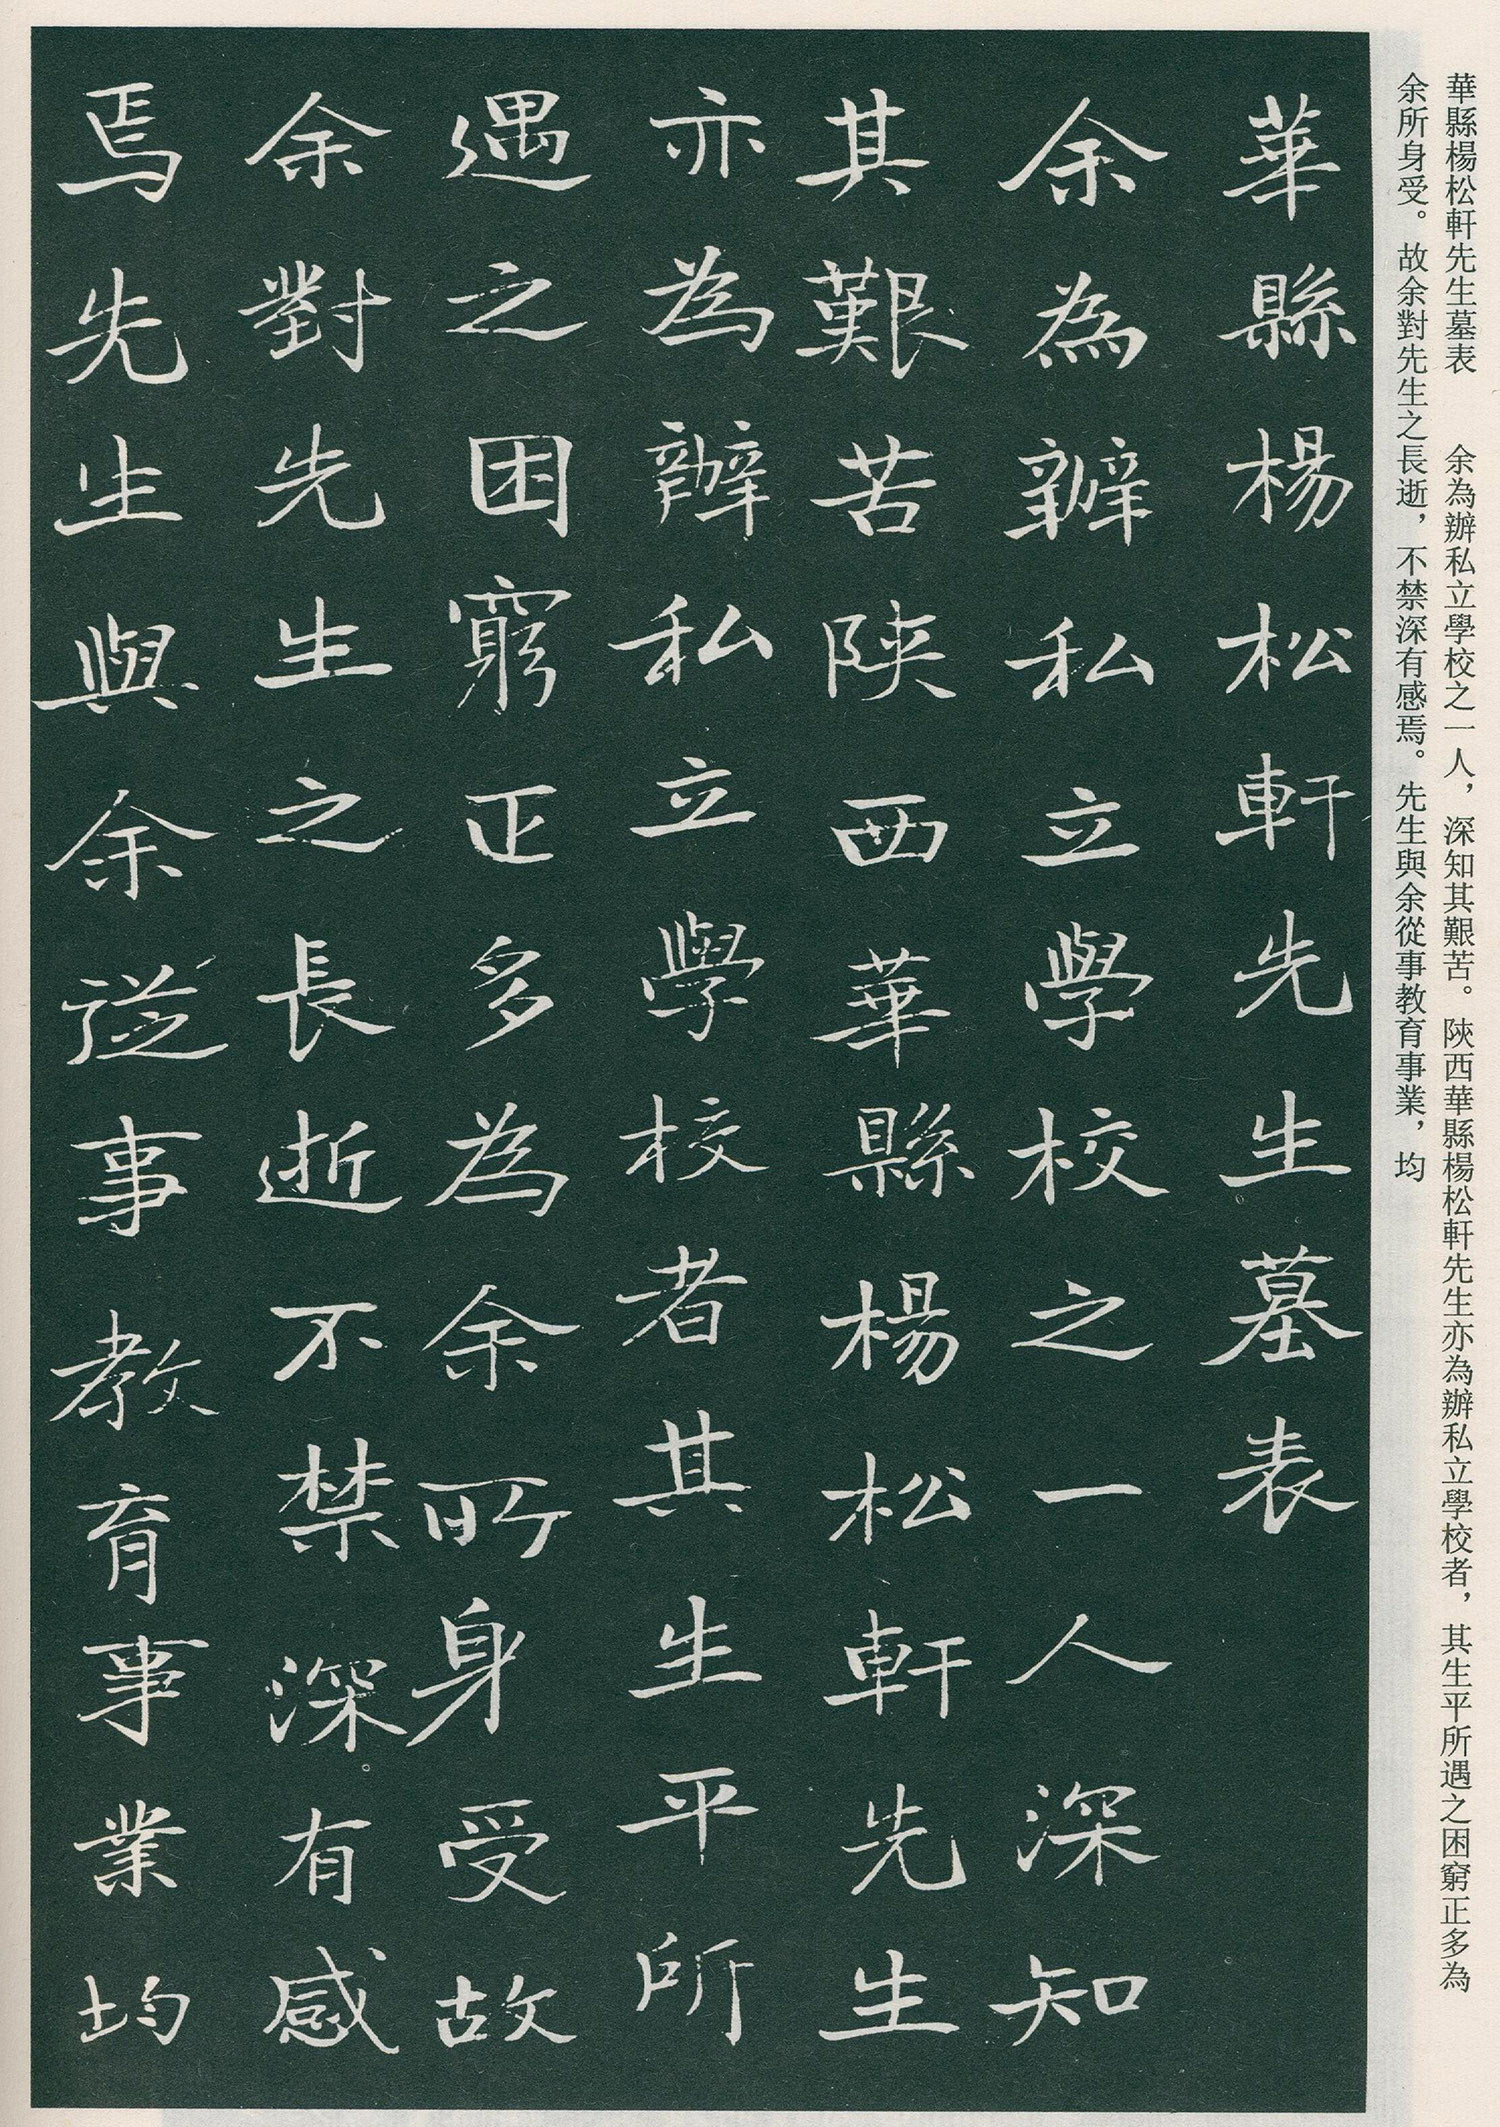 華縣楊松軒先生墓表　余為辦私立學校之一人，深知其艱苦。陝西華縣楊松軒先生亦為辦私立學校者，其生平所遇之困窮正多為
余所身受。故余對先生之長逝，不禁深有感焉。先生與余從事教育事業，均
華縣楊松軒先生墓表
余為辦私立學校之一人深知
其艱苦陝西華縣楊松軒先生
亦為辦私立學校者其生平所
遇之困窮正多為余所身受故
余對先生之長逝不禁深有感
焉先生與余從事教育事業均